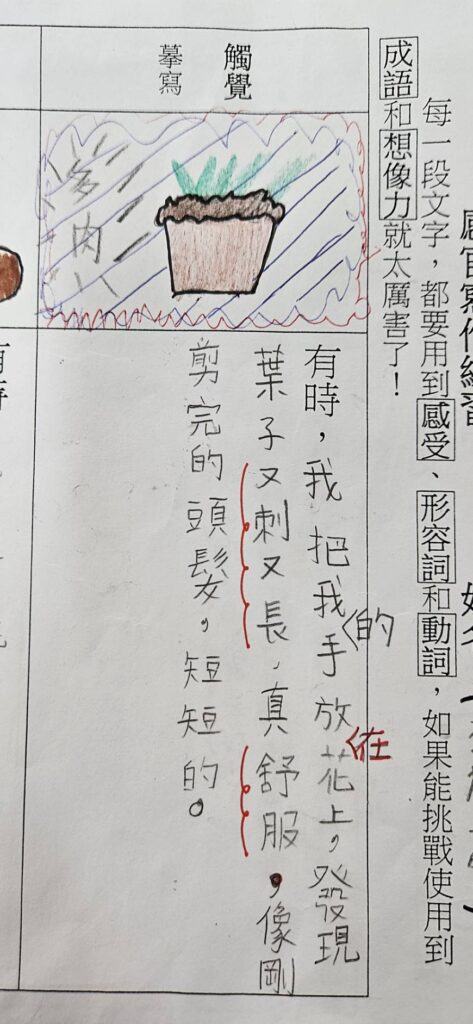 感官寫作練習
每一段文字，都要用到感受、形容詞和動詞，如果能挑戰使用到
成語和想像力就太厲害了！
觸覺
摹寫
多肉
有時，我把我的手放在花上，發現
葉子又刺又長，真舒服，像剛
剪完的頭髮，短短的。